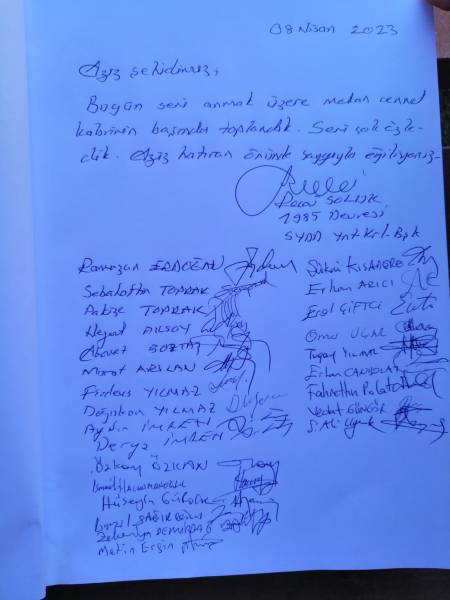 08 Nisan 2023
Aziz şehidimiz,
Bugün seni anmak üzere mekan cennet
kabrinin başında toplandık. Seni çok özle-
dik. Aziz hatıran önünde saygıyla eğiliyoruz.
1985 Devresi
Ramazan ERDOĞAN
Sebahattin TOPRAK
Pakize TOPRAK
Nejat AKSOY
Ahmet BOZTAŞ
Murat ARSLAN
Firdevs YILMAZ
Doğukan YILMAZ
Aydın İMREN
Derya İMREN
Özkan ÖZKAN
Hüseyin
Zekeriya DEMİRDAĞ
Metin Ergin
Şükrü
Erhan ARICI
Erol ÇİFTCİ
Ömer UÇAR
Tugay YILMAZ
Erhan
Fahrettin Polat
Vedat GÜNGÖR
S. Ali